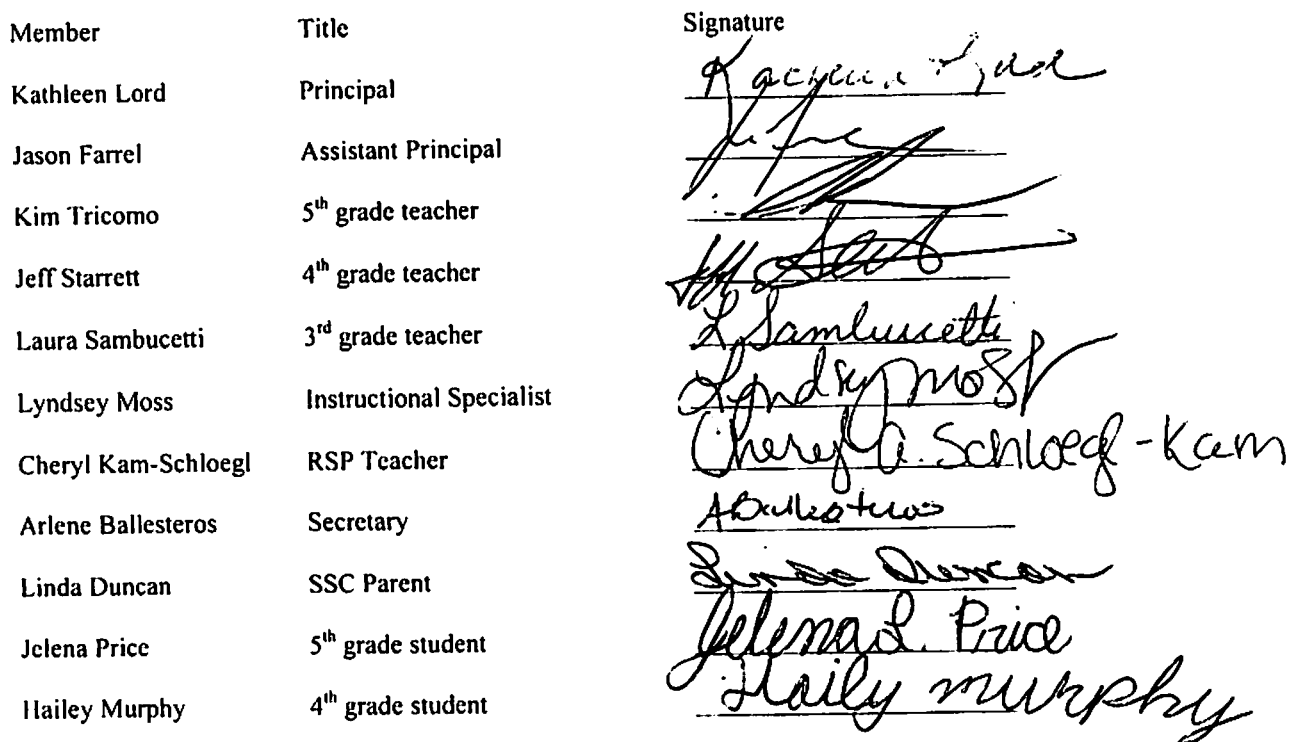 Member Title Signature
Kathleen Lord Principal
Jason Farrel Assistant Principal
Kim Tricomo 5th grade teacher
Jeff Starrett 4th grade teacher Jeff
Laura Sambucetti 3rd grade teacher L Sambucetti
Lyndsey Moss Instructional Specialist Lyndsey Moss
Cheryl Kam-Schloegl RSP Teacher Cheryl A. Schloegl-Kam
Arlene Ballesteros Secretary ABallesteros
Linda Duncan SSC Parent Linda Duncan
Jelena Price 5th grade student Jelena L. Price
Hailey Murphy 4th grade student Haily murphy